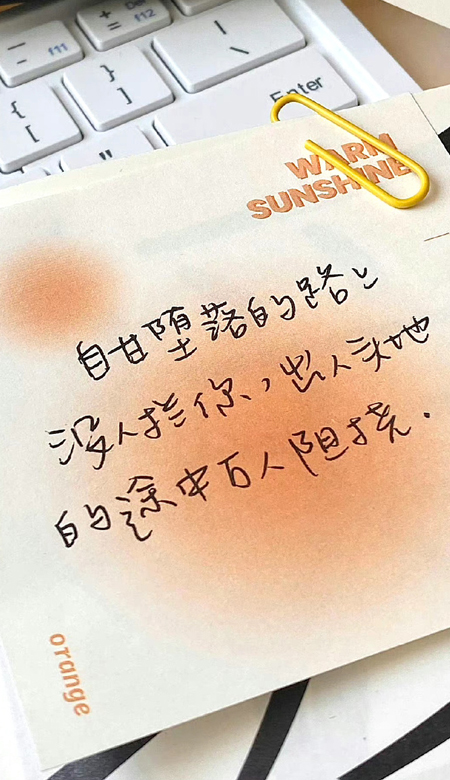 Del
f11
f12
Enter
WARM
SUNSHINE
自甘堕落的路上
没人拦你，出人头地
的途中百人阻挠.
orange